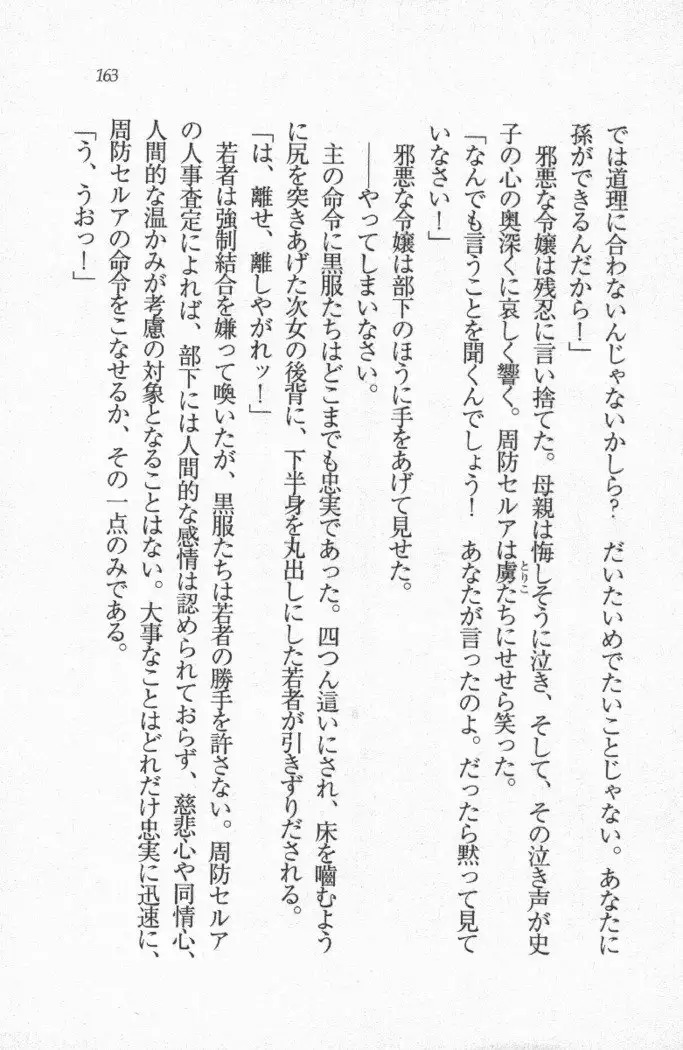 163
では道理に合わないんじゃないかしら？　だいたいめでたいことじゃない。あなたに
孫ができるんだから！」
　邪悪な令嬢は残忍に言い捨てた。母親は悔しそうに泣き、そして、その泣き声が史
子の心の奥深くに哀しく響く。周防セルアは虜たちにせせら笑った。
とりこ
「なんでも言うことを聞くんでしょう！　あなたが言ったのよ。だったら黙って見て
いなさい！」
　邪悪な令嬢は部下のほうに手をあげて見せた。
　――やってしまいなさい。
　主の命令に黒服たちはどこまでも忠実であった。四つん這いにされ、床を嚙むよう
に尻を突きあげた次女の後背に、下半身を丸出しにした若者が引きずりだされる。
「は、離せ、離しやがれッ！」
　若者は強制結合を嫌って喚いたが、黒服たちは若者の勝手を許さない。周防セルア
の人事査定によれば、部下には人間的な感情は認められておらず、慈悲心や同情心、
人間的な温かみが考慮の対象となることはない。大事なことはどれだけ忠実に迅速に、
周防セルアの命令をこなせるか、その一点のみである。
「う、うおっ！」